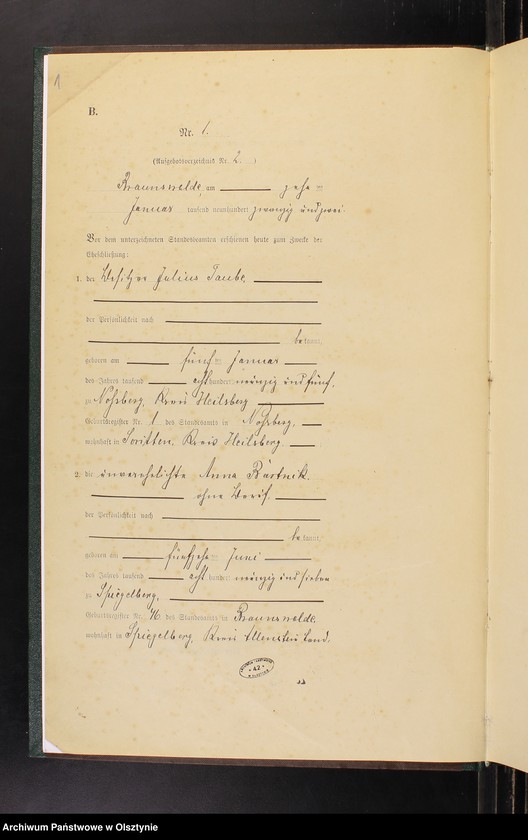 1
B.
Nr. 1.
(Aufgebotsverzeichnis Nr. 2.)
Braunswalde, am zehn ten
Januar tausend neunhundert zwanzig und zwei.
Vor dem unterzeichneten Standesbeamten erschienen heute zum Zwecke der
Eheschließung:
1. der Besitzer Julius Taube,
der Persönlichkeit nach
be kannt,
geboren am fünf ten Januar
des Jahres tausend acht hundert neunzig und fünf,
zu Noßberg, Kreis Heilsberg
Geburtsregister Nr. 1 des Standesamts in Noßberg,
wohnhaft in Scritten, Kreis Heilsberg
2. die unverehelichte Anna Bastnik.
ohne Beruf.
der Persönlichkeit nach
be kannt,
geboren am fünfzehn ten Juni
des Jahres tausend acht hundert neunzig und sieben
zu Spiegelberg,
Geburtsregister Nr. 46 des Standesamts in Braunswalde,
wohnhaft in Spiegelberg, Kreis Allenstein Land.
42
Archiwum Państwowe w Olsztynie